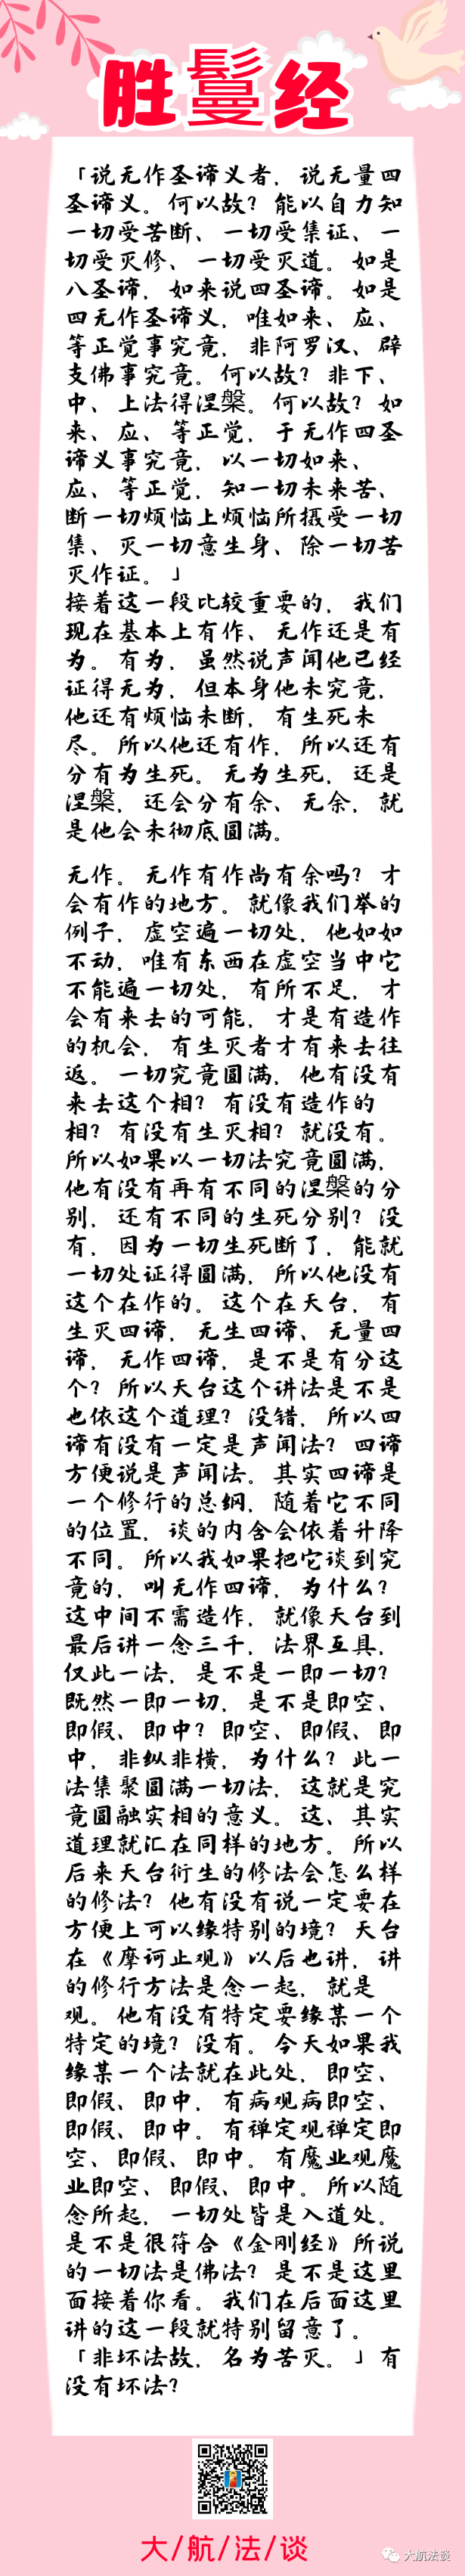 胜鬘经
「说无作圣谛义者，说无量四
圣谛义。何以故？能以自力知
一切受苦断、一切受集证、一
切受灭修、一切受灭道。如是
八圣谛，如来说四圣谛。如是
四无作圣谛义，唯如来、应、
等正觉事究竟，非阿罗汉、辟
支佛事究竟。何以故？非下、
中、上法得涅槃。何以故？如
来、应、等正觉，于无作四圣
谛义事究竟，以一切如来、
应、等正觉，知一切未来苦、
断一切烦恼上烦恼所摄受一切
集、灭一切意生身、除一切苦
灭作证。」
接着这一段比较重要的，我们
现在基本上有作、无作还是有
为。有为，虽然说声闻他已经
证得无为，但本身他未究竟，
他还有烦恼未断，有生死未
尽。所以他还有作，所以还有
分有为生死。无为生死，还是
涅槃，还会分有余、无余，就
是他会未彻底圆满。
无作。无作有作尚有余吗？才
会有作的地方。就像我们举的
例子，虚空遍一切处，他如如
不动，唯有东西在虚空当中它
不能遍一切处，有所不足，才
会有来去的可能，才是有造作
的机会，有生灭者才有来去往
返。一切究竟圆满，他有没有
来去这个相？有没有造作的
相？有没有生灭相？就没有。
所以如果以一切法究竟圆满，
他有没有再有不同的涅槃的分
别，还有不同的生死分别？没
有，因为一切生死断了，能就
一切处证得圆满，所以他没有
这个在作的。这个在天台，有
生灭四谛，无生四谛、无量四
谛，无作四谛，是不是有分这
个？所以天台这个讲法是不是
也依这个道理？没错，所以四
谛有没有一定是声闻法？四谛
方便说是声闻法。其实四谛是
一个修行的总纲，随着它不同
的位置，谈的内含会依着升降
不同。所以我如果把它谈到究
竟的，叫无作四谛，为什么？
这中间不需造作，就像天台到
最后讲一念三千，法界互具，
仅此一法，是不是一即一切？
既然一即一切，是不是即空、
即假、即中？即空、即假、即
中，非纵非横，为什么？此一
法集聚圆满一切法，这就是究
竟圆融实相的意义。这、其实
道理就汇在同样的地方。所以
后来天台衍生的修法会怎么样
的修法？他有没有说一定要在
方便上可以缘特别的境？天台
在《摩诃止观》以后也讲，讲
的修行方法是念一起，就是
观。他有没有特定要缘某一个
特定的境？没有。今天如果我
缘某一个法就在此处，即空、
即假、即中，有病观病即空、
即假、即中。有禅定观禅定即
空、即假、即中。有魔业观魔
业即空、即假、即中。所以随
念所起，一切处皆是入道处。
是不是很符合《金刚经》所说
的一切法是佛法？是不是这里
面接着你看。我们在后面这里
讲的这一段就特别留意了。
「非坏法故，名为苦灭。」有
没有坏法？
大/航/法/谈
大航法谈